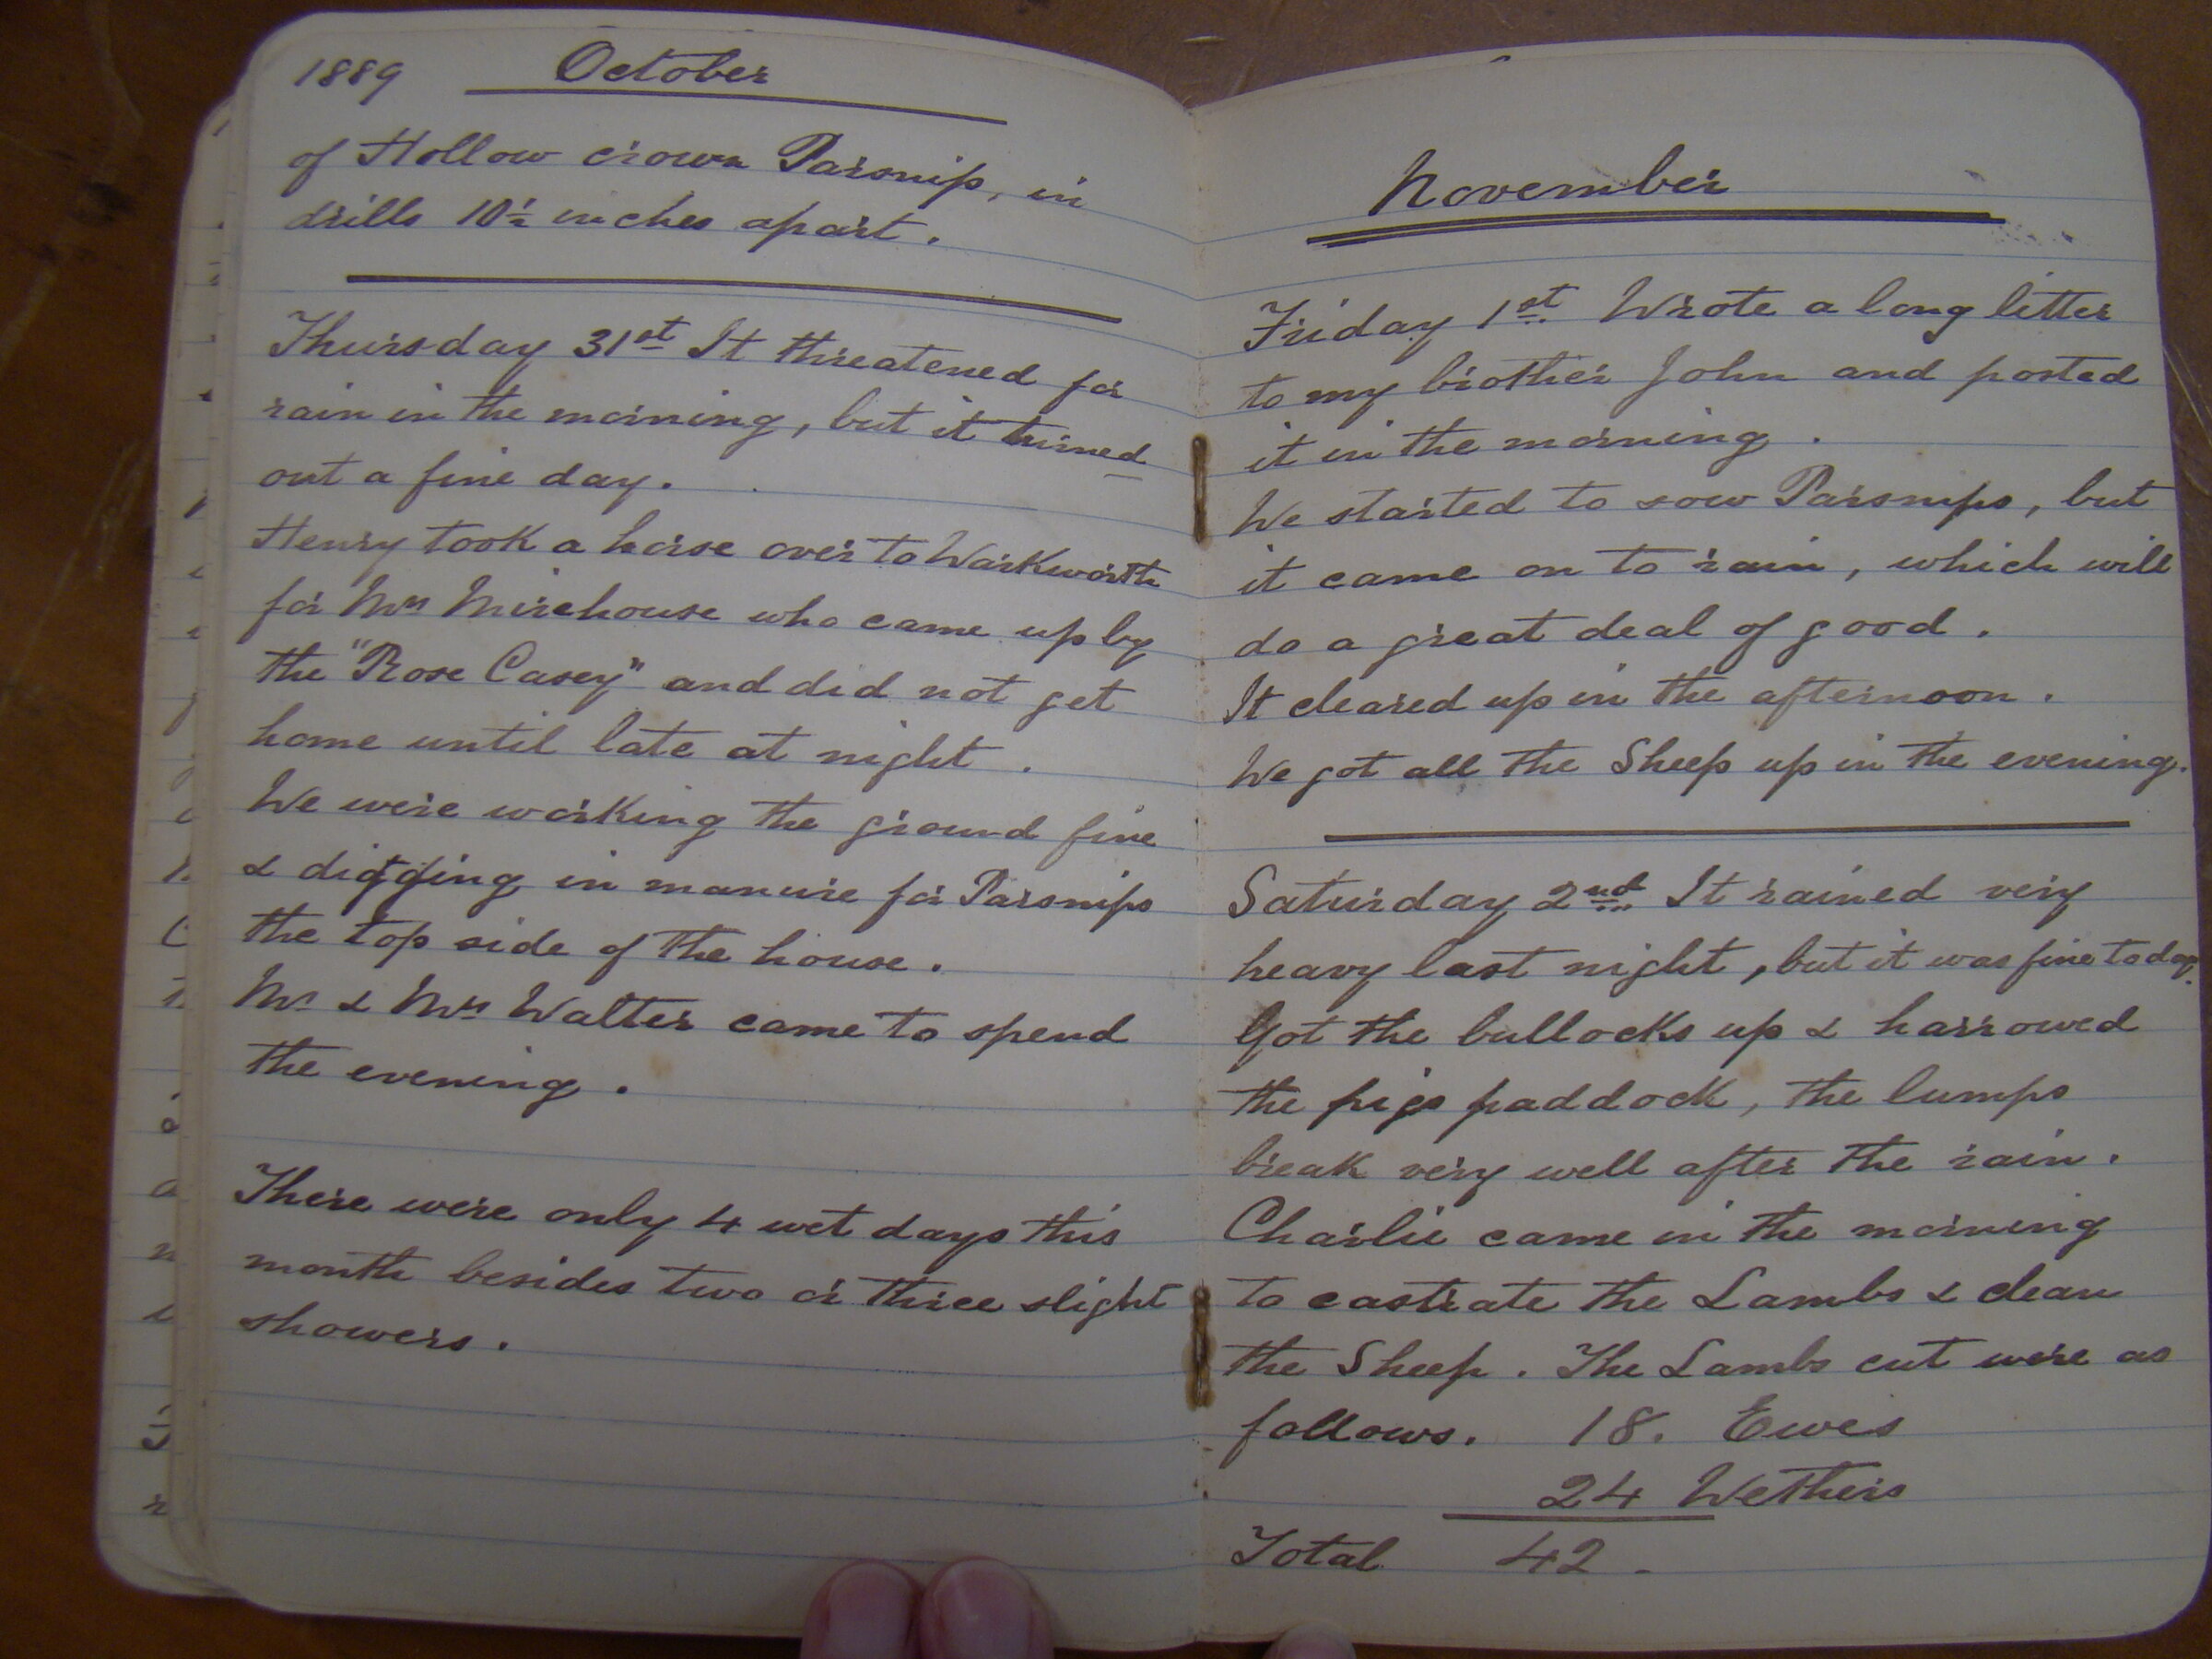 1889 October
of Hollow crown Parsnip, in
drills 10½ inches apart.
Thursday 31st It threatened for
rain in the morning, but it turned
out a fine day.
Henry took a horse over to Warkworth
for Mrs Mirehouse who came up by
the "Rose Casey" and did not get
home until late at night.
We were working the ground fine
& digging in manure for Parsnips
the top side of the house.
Mr & Mrs Walter came to spend
the evening.
There were only 4 wet days this
month besides two or three slight
showers.
November
Friday 1st Wrote a long letter
to my brother John and posted
it in the morning.
We started to sow Parsnips, but
it came on to rain, which will
do a great deal of good.
It cleared up in the afternoon.
We got all the Sheep up in the evening.
Saturday 2nd It rained very
heavy last night, but it was fine today.
Got the bullocks up & harrowed
the pigs paddock, the lumps
break very well after the rain.
Charlie came in the morning
to castrate the Lambs & clean
the Sheep. The Lambs cut were as
follows. 18. Ewes
24 Wethers
Total 42.